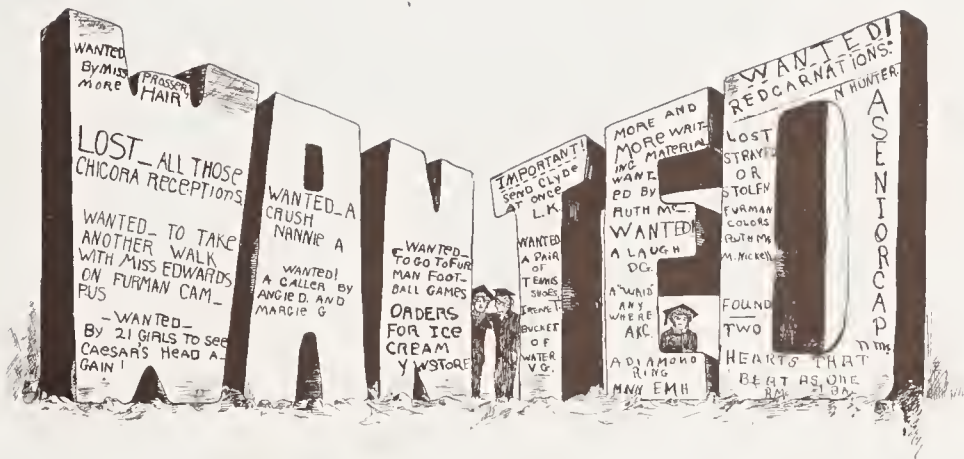 WANTED
BY MISS
MORE
PROSSER,
HAIR
LOST_ ALL THOSE
CHICORA RECEPTIONS
WANTED_ TO TAKE
ANOTHER WALK
WITH MISS EDWARDS
ON FURMAN CAM_
PUS
_WANTED_
BY 21 GIRLS TO SEE
CAESAR'S HEAD A_
GAIN!
WANTED_A
CRUSH
NANNIE A
WANTED!
A CALLER BY
ANGIE D. AND
MARGIE G
_WANTED_
TO GO TO FUR
MAN FOOT_
BALL GAMES
ORDERS
FOR ICE
CREAM
Y W STORE
IMPORTANT!
SEND CLYDE
AT ONCE
L.K.
WANTED
A PAIR
OF
TENNIS
SHOES,
IRENE T.
BUCKET
OF
WATER
V.G.
MORE AND
MORE WRIT_
ING MATERIAL
WANT_
ED BY
RUTH Mc_
WANTED!
A LAUGH
D.G.
ANY
WHERE
A.K.C.
A DIAMOND
RING
EMH
WANTED!
RED CARNATIONS.
N HUNTER.
LOST
STRAYED
OR
STOLEN
FURMAN
COLORS
RUTH Mc
M. NICKELL
FOUND
TWO
HEARTS THAT
BEAT AS ONE
A SENIOR CAP